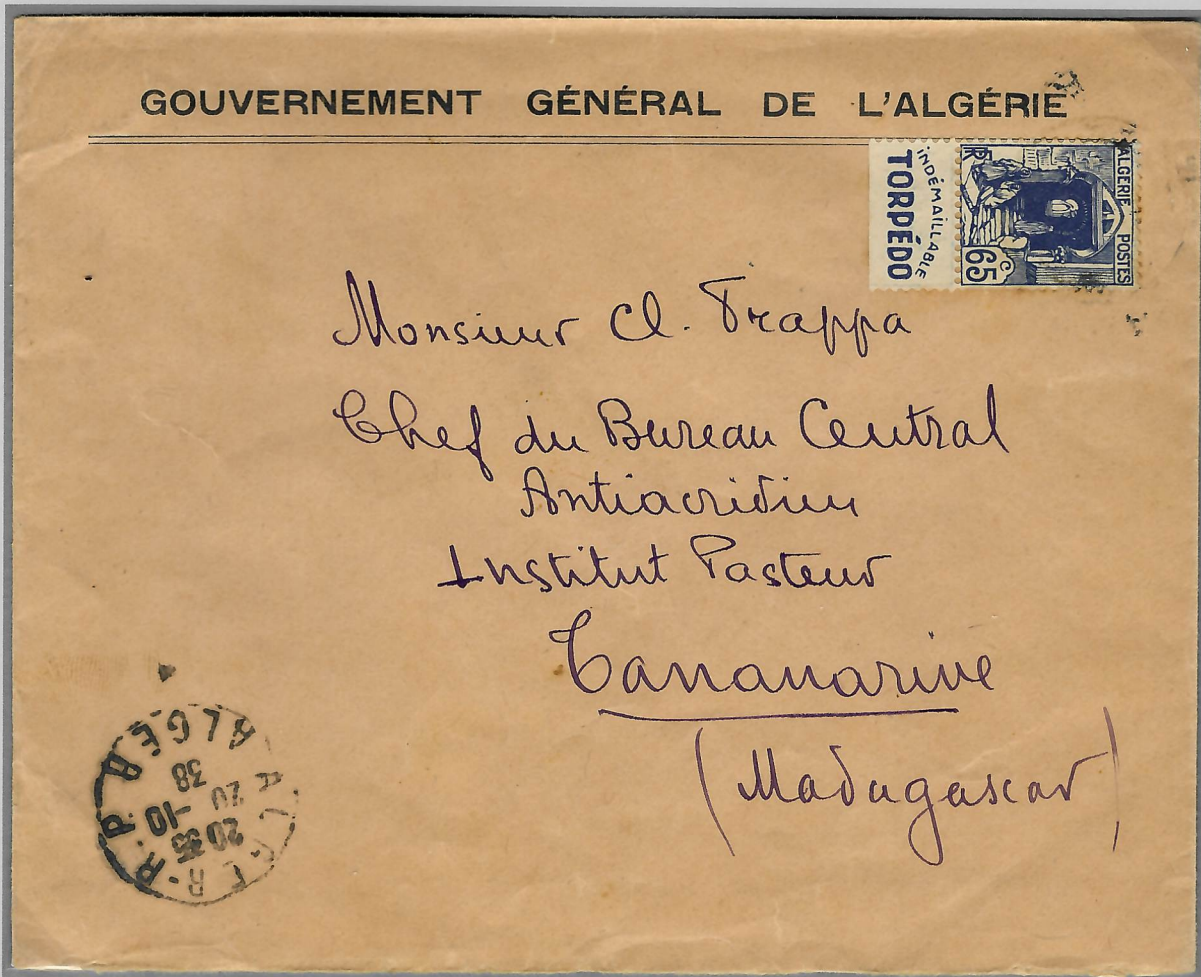 GOUVERNEMENT GÉNÉRAL DE L'ALGÉRIE
INDÉMAILLABLE
TORPÉDO
RF
ALGERIE POSTES
65c
Monsieur Cl. Trappa
Chef du Bureau Central
Antiacridien
Institut Pasteur
Tananarive
(Madagascar)
ALGER-R.P
2035
20 -10
38
ALGER